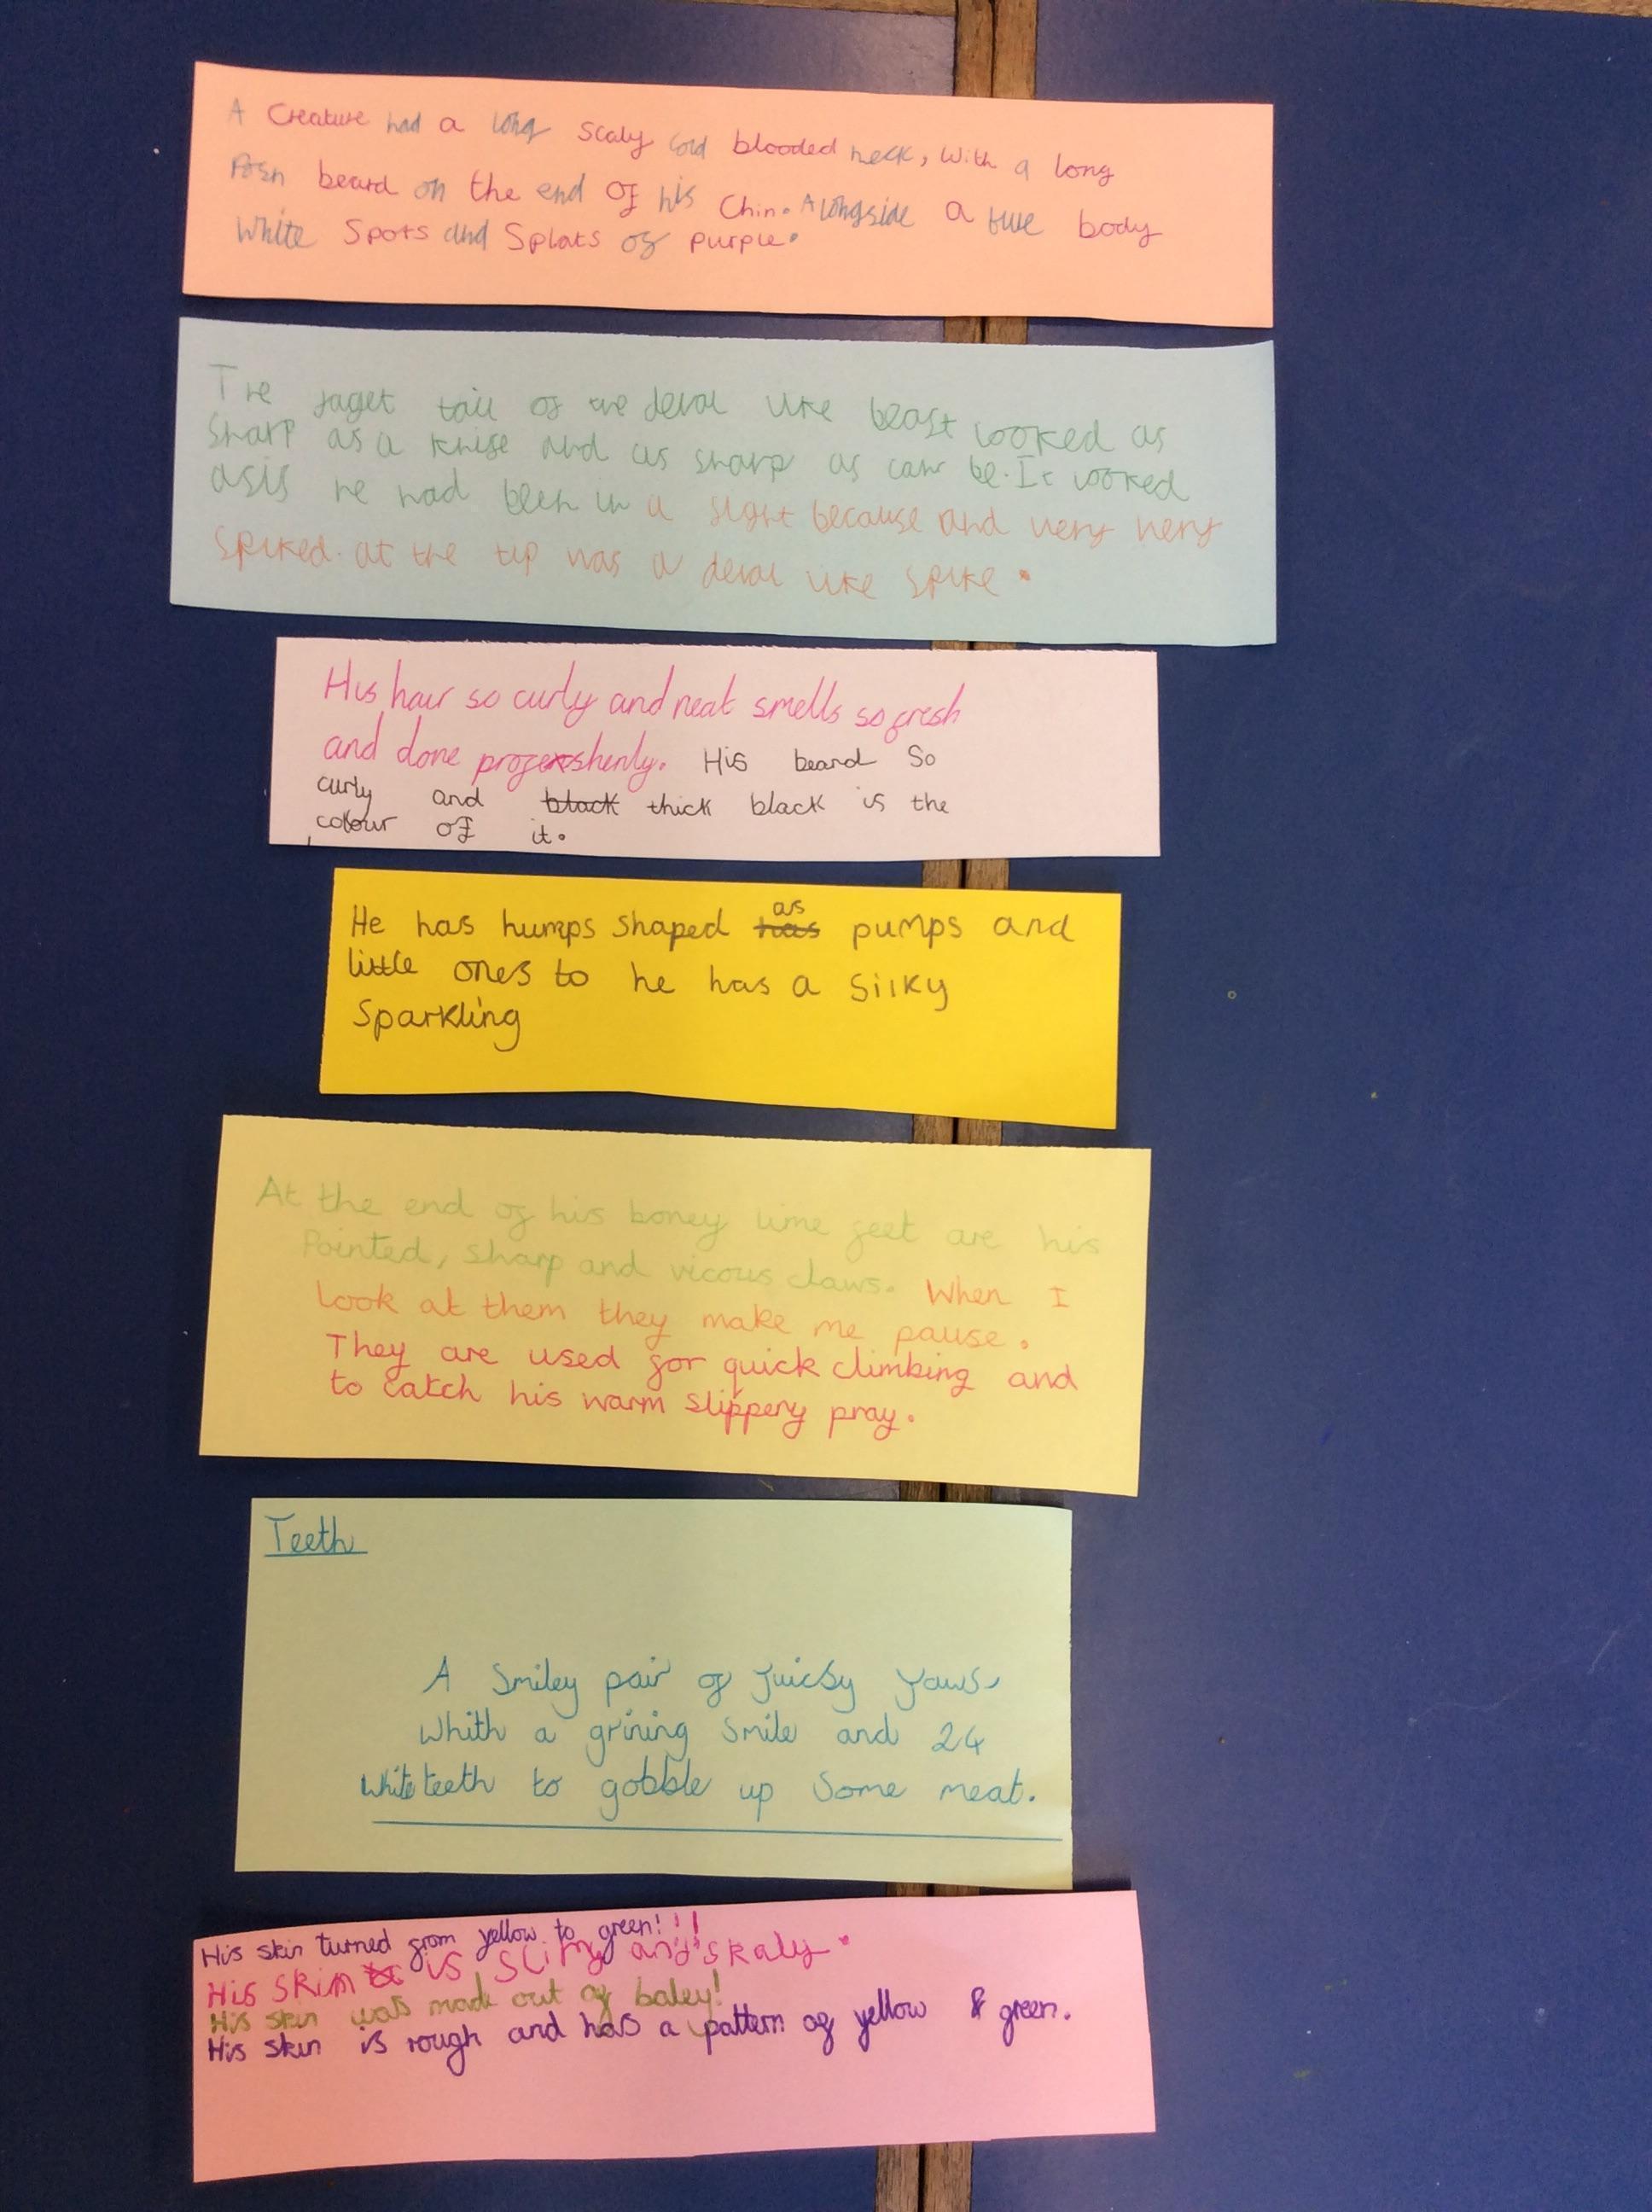 A Creature had a long scaly cold blooded neck, With a long
Posh beard on the end of his Chin. Alongside a blue body
White Spots and Splats of purple.
The jaget tail of the deval like beast looked as
sharp as a knife and as sharp as can be. It looked
as if he had been in a fight because and very very
spiked. at the tip was a deval like spike.
His hair so curly and neat smells so fresh
and done profershenly. His beard So
curly and black thick black is the
colour of it.
He has humps shaped has as pumps and
little ones to he has a silky
Sparkling
At the end of his boney lime feet are his
Pointed, sharp and vicous claws. When I
Look at them they make me pause.
They are used for quick climbing and
to catch his warm slippery pray.
Teeth
A Smiley pair of juicby Jaws,
Whith a grining smile and 24
white teeth to gobble up Some meat.
His skin turned from yellow to green!!!
His Skin is slimy and skaly.
His skin was made out of baley!
His skin is rough and has a pattern of yellow & green.